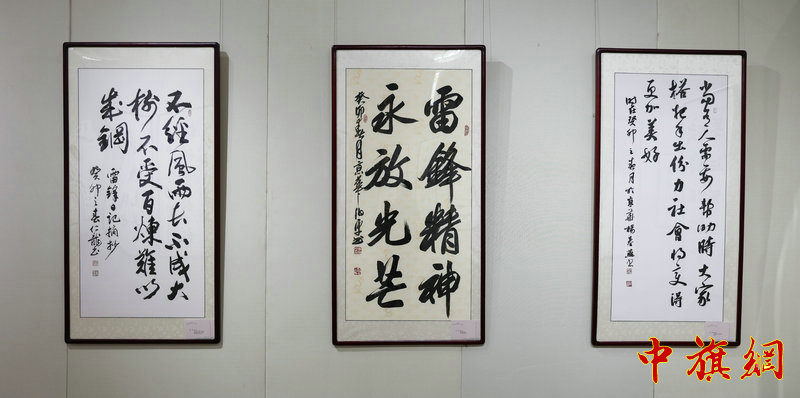 不經風雨长不成大
樹不受百煉難以
成鋼
雷鋒日記摘抄
癸卯之春仁龍书
雷鋒精神
永放光芒
癸卯年春月京華
当有人需要帮助時大家
搭把手出份力社會将变得
更加美好
时在癸卯之春月於京華楊春
中旗網